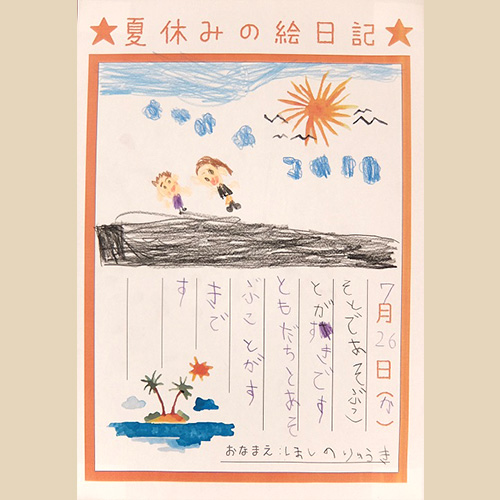 ★夏休みの絵日記★
7月26日(か)
そとであそぶこ
とがすきです
ともだちとあそ
ぶことがす
きで
す
おなまえ:ほしのりゅうき